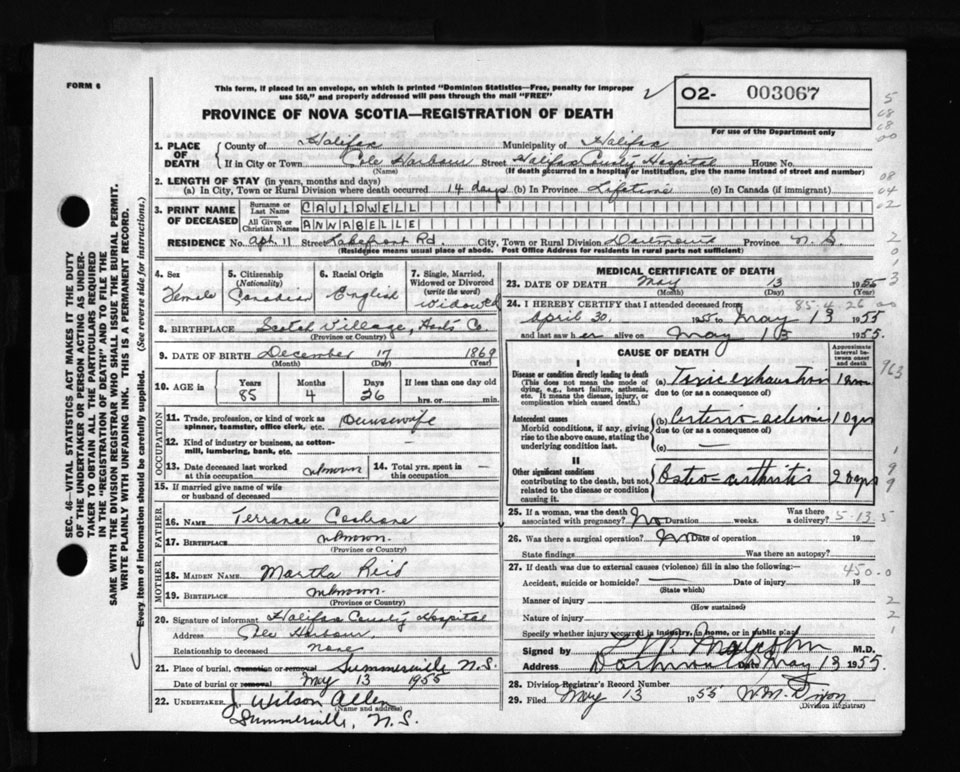 FORM 6
This form, if placed in an envelope, on which is printed "Dominion Statistics—Free, penalty for improper
use $50," and properly addressed will pass through the mail "FREE"
PROVINCE OF NOVA SCOTIA—REGISTRATION OF DEATH
02- 003067
For use of the Department only
1. PLACE OF DEATH
County of Halifax Municipality of Halifax
If in City or Town Cole Harbour Street Halifax County Hospital House No.
(Name) (If death occurred in a hospital or institution, give the name instead of street and number)
2. LENGTH OF STAY (in years, months and days)
(a) In City, Town or Rural Division where death occurred 14 days (b) In Province Lifetime (c) In Canada (if immigrant)
3. PRINT NAME OF DECEASED
Surname or Last Name CAULDWELL
All Given or Christian Names ANNABELLE
RESIDENCE No. Apt. 11 Street Lakefront Rd. City, Town or Rural Division Dartmouth Province N.S.
(Residence means usual place of abode. Post Office Address for residents in rural parts not sufficient)
4. Sex Female
5. Citizenship (Nationality) Canadian
6. Racial Origin English
7. Single, Married, Widowed or Divorced (write the word) Widowed
8. BIRTHPLACE Scotch Village, Hants Co.
(Province or Country)
9. DATE OF BIRTH December 17 1869
(Month) (Day) (Year)
10. AGE in Years 85 Months 4 Days 26 If less than one day old hrs. or min.
OCCUPATION
11. Trade, profession, or kind of work as spinner, teamster, office clerk, etc. Housewife
12. Kind of industry or business, as cotton-mill, lumbering, bank, etc.
13. Date deceased last worked at this occupation unknown 14. Total yrs. spent in this occupation —
15. If married give name of wife or husband of deceased
FATHER
16. NAME Terrance Cochrane
17. BIRTHPLACE unknown
(Province or Country)
MOTHER
18. MAIDEN NAME Martha Reid
19. BIRTHPLACE unknown
(Province or Country)
20. Signature of informant Halifax County Hospital
Address Cole Harbour
Relationship to deceased None
21. Place of burial, cremation or removal Summerville N.S.
Date of burial or removal May 13 1955
22. UNDERTAKER J. Wilson Allen
(Name and address)
Summerville, N.S.
MEDICAL CERTIFICATE OF DEATH
23. DATE OF DEATH May 13 1955
(Month) (Day) (Year)
24. I HEREBY CERTIFY that I attended deceased from 85-4-26
April 30 1955 to May 13 1955
and last saw her alive on May 13 1955.
CAUSE OF DEATH
Approximate interval between onset and death
I
Disease or condition directly leading to death
(This does not mean the mode of dying, e.g., heart failure, asthenia, etc. It means the disease, injury, or complication which caused death.)
(a) Toxic exhaustion
due to (or as a consequence of)
Antecedent causes
Morbid conditions, if any, giving rise to the above cause, stating the underlying condition last.
(b) Arterio-sclerosis 10 yrs
due to (or as a consequence of)
(c) —
II
Other significant conditions
contributing to the death, but not related to the disease or condition causing it.
Osteo-arthritis 20 yrs
25. If a woman, was the death associated with pregnancy? No Duration weeks. Was there a delivery?
5-13-5
26. Was there a surgical operation? No Date of operation 19
State findings Was there an autopsy?
27. If death was due to external causes (violence) fill in also the following:—
450.0
Accident, suicide or homicide? — Date of injury 19
(State which)
Manner of injury
(How sustained)
Nature of injury
Specify whether injury occurred in industry, in home, or in public place
Signed by M.D.
Address Dartmouth Date May 13 1955.
28. Division Registrar's Record Number
29. Filed May 13 1955 W.M. Dixon
(Division Registrar)
SEC. 46—VITAL STATISTICS ACT MAKES IT THE DUTY
OF THE UNDERTAKER OR PERSON ACTING AS UNDER-
TAKER TO OBTAIN ALL THE PARTICULARS REQUIRED
IN THE "REGISTRATION OF DEATH" AND TO FILE THE
SAME WITH THE DIVISION REGISTRAR WHO SHALL ISSUE THE BURIAL PERMIT.
WRITE PLAINLY WITH UNFADING INK. THIS IS A PERMANENT RECORD.
Every item of information should be carefully supplied. (See reverse side for instructions.)